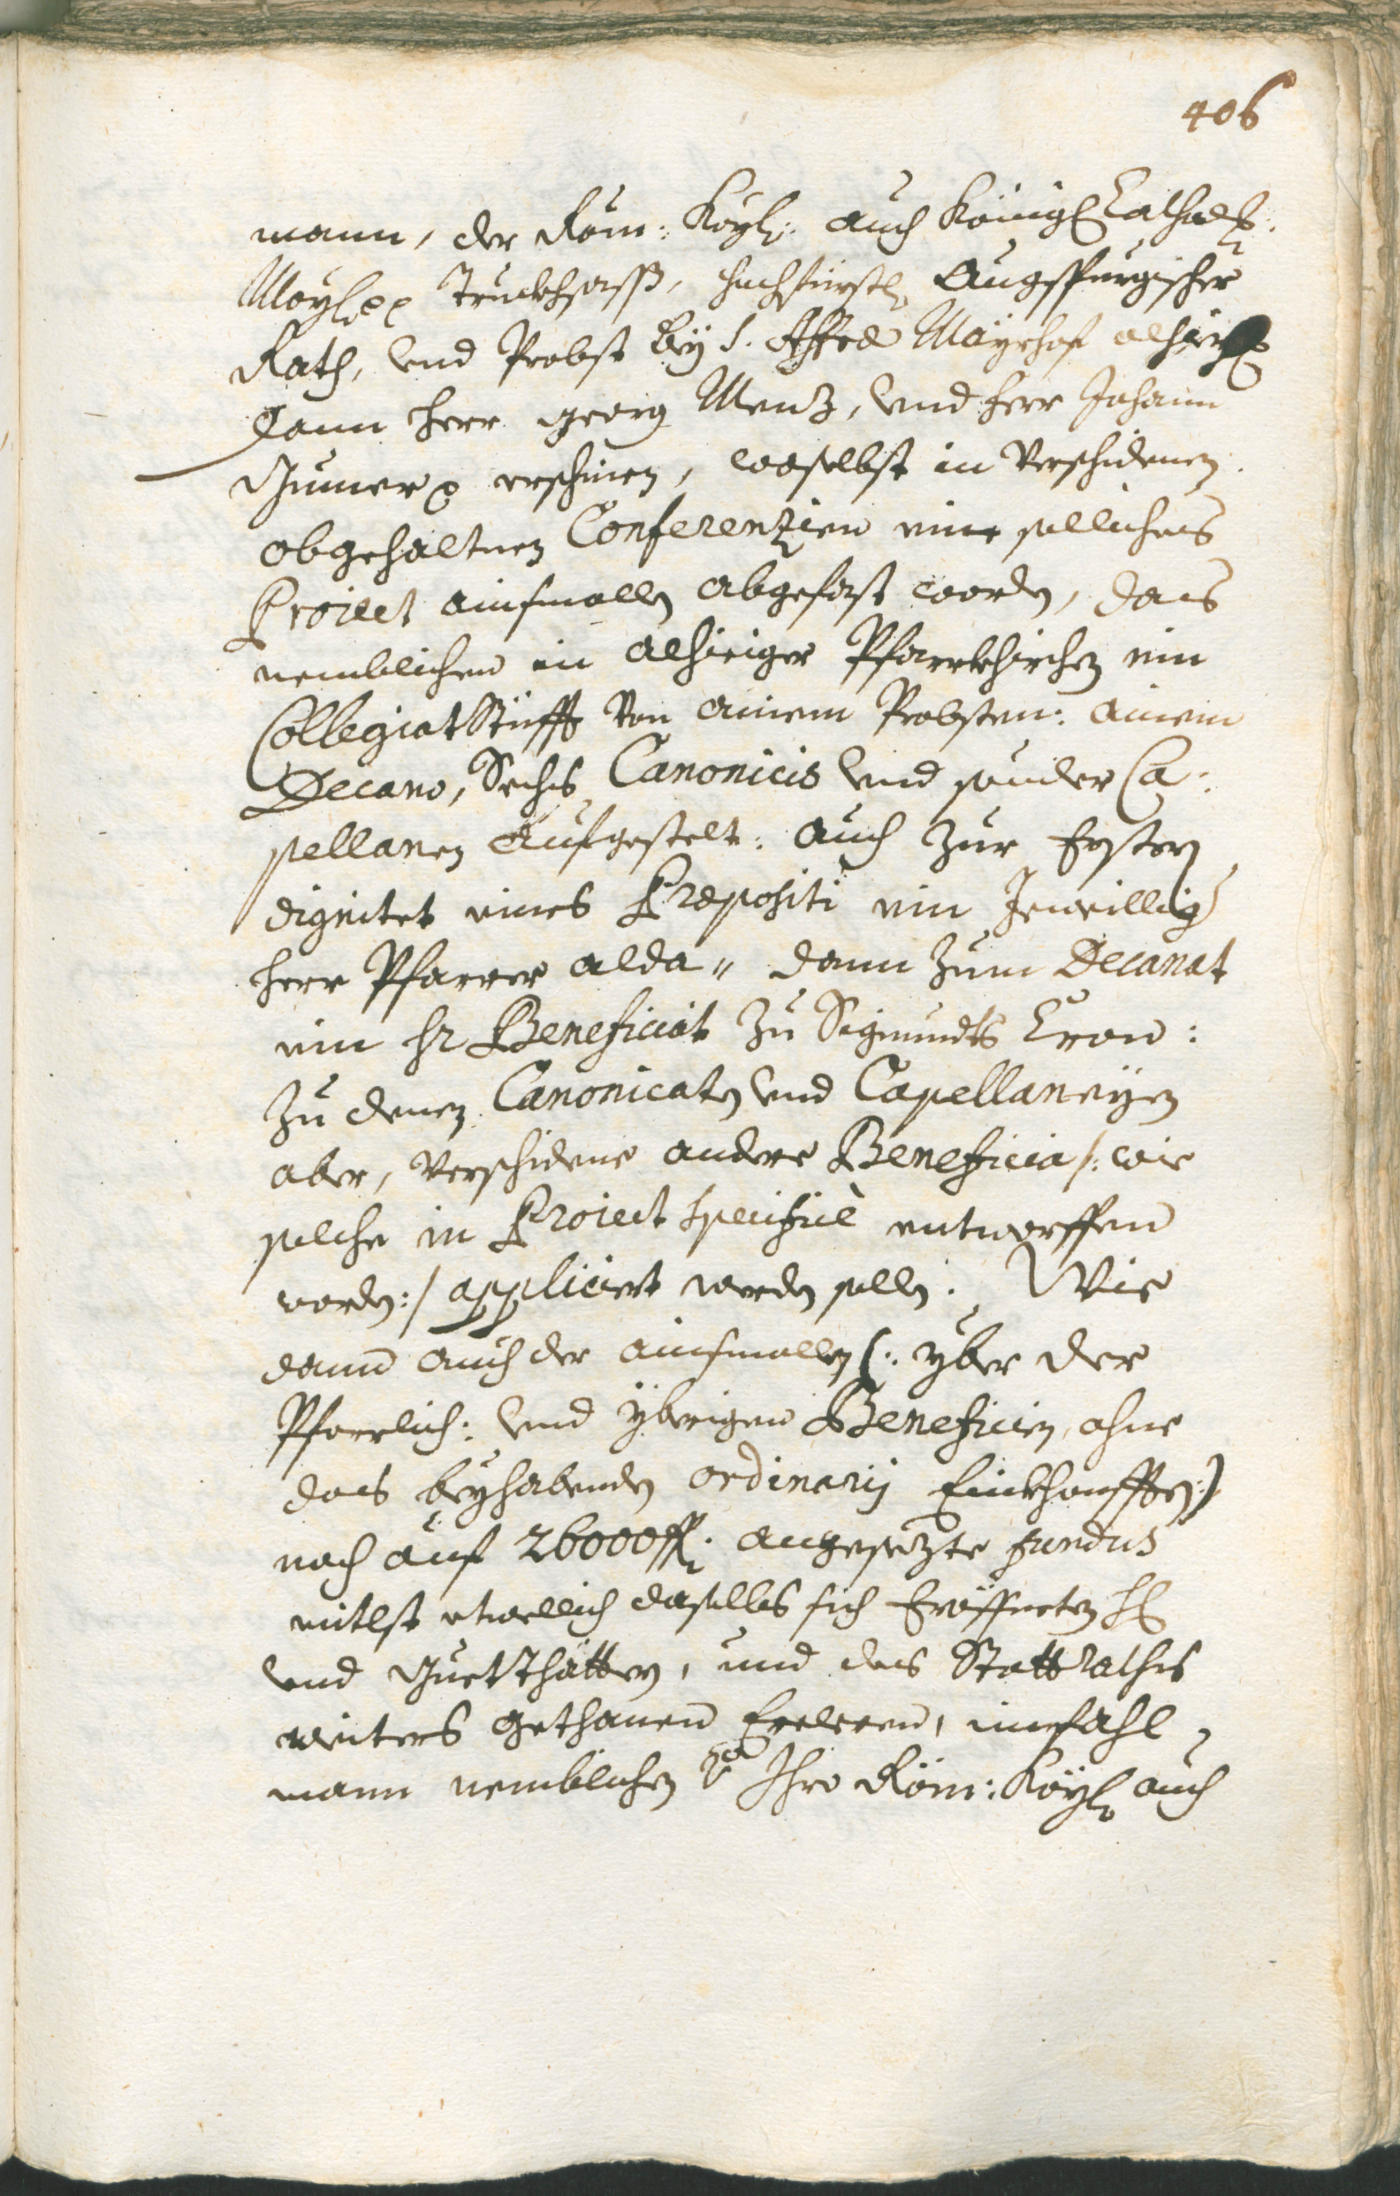 406
mann, der Röm: Kayl: auch Königl Cathol:
Mayl: Truckhsasß, hochfürstl Augspurgischer
Rath, vnd Probst bey S. Afra Mayrhof alhier
dann herr Georg Menz, vnd herr Johann
Gumer erschinen, woselbst in verschidenen
obgehaltnen Conferenzien eine solliches
Proiect ainsmallen abgefast worden, das
nemblichen in alhieiger Pfarrkhirchen ein
Collegiat Stüfft von ainem Probsten: ainem
Decano, Sechs Canonicis vnd souiler Ca:
pellanen aufgestelt: auch zur Ersten
dignitet eines Præpositi ein Jeweillig
herr Pfarrer alda„ dann zum Decanat
ein hr Beneficiat zu Sigmundts Cron:
zu denen Canonicaten vnd Capellaneyen
aber, verschidene andere Beneficia /: wie
solche in Proiect specificè entworffen
worden:/ appliciert werden sollen. Wie
dann auch der ainsmallen (: yber der
Pfarrlich: vnd ybrigen Beneficien, ohne
das beyhabenden ordinarij Einkhonfften:)
noch auf 26000 fl: angesezte fundus
mitlst etwellich daselbs sich Eröffneten
vnd Guetthätter, und des Statt Raths
weiters gethanen Erclern, imfahl
mann nemblichen Ihro Röm: Kayl auch